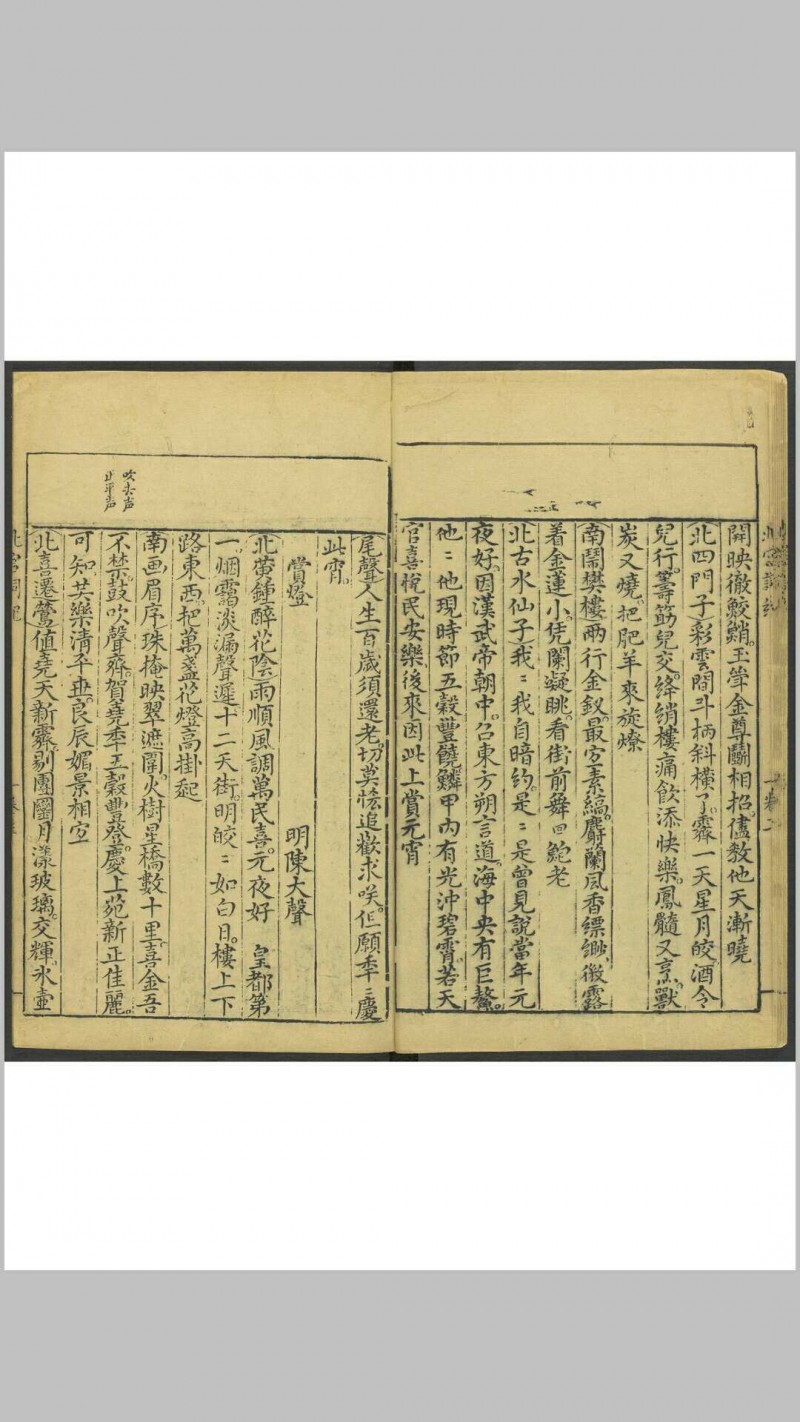 開映徹鮫綃。玉斝金尊鬬相招。儘教他天漸曉
北四門子彩雲間斗柄斜橫了。霽一天星月皎。酒令
兒行。籌筯兒交。絳綃樓痛飲添快樂。鳳髓又烹。獸
炭又燒。把肥羊來旋燎
南鬧樊樓兩行金釵。最宐素縞。麝蘭風香縹緲。微露
着金蓮小。凭闌凝眺。看街前舞回鮑老
北古水仙子我﹦我自暗約。是﹦是曾見說當年元
夜好。因漢武帝朝中。召東方朔言道。海中央有巨鰲。
他﹦他現時節五穀豐饒。鱗甲內有光沖碧霄。若天
官喜悅民安樂。後來因此上賞元宵
尾聲人生百歲須還老。切莫恠追歡求咲。但願年﹦慶
此宵。
賞燈
明陳大聲
北黃鍾醉花陰雨順風調萬民喜。元夜好 皇都第
一。烟靄淡漏聲遲十二天街。明皎﹦如白日。樓上下
路東西。把萬盞花燈高掛起
南画眉序珠掩映翠遮圍。火樹星橋數十里。喜金吾
不禁。鼓吹聲齊。賀堯年五穀豐登。慶上苑新正佳麗。
可知共樂清平世。良辰媚景相宐
北喜遷鶯值堯天新霽。剔團圞月漾玻璃。交輝。氷壺
吹去声
正平声
北宮詞紀